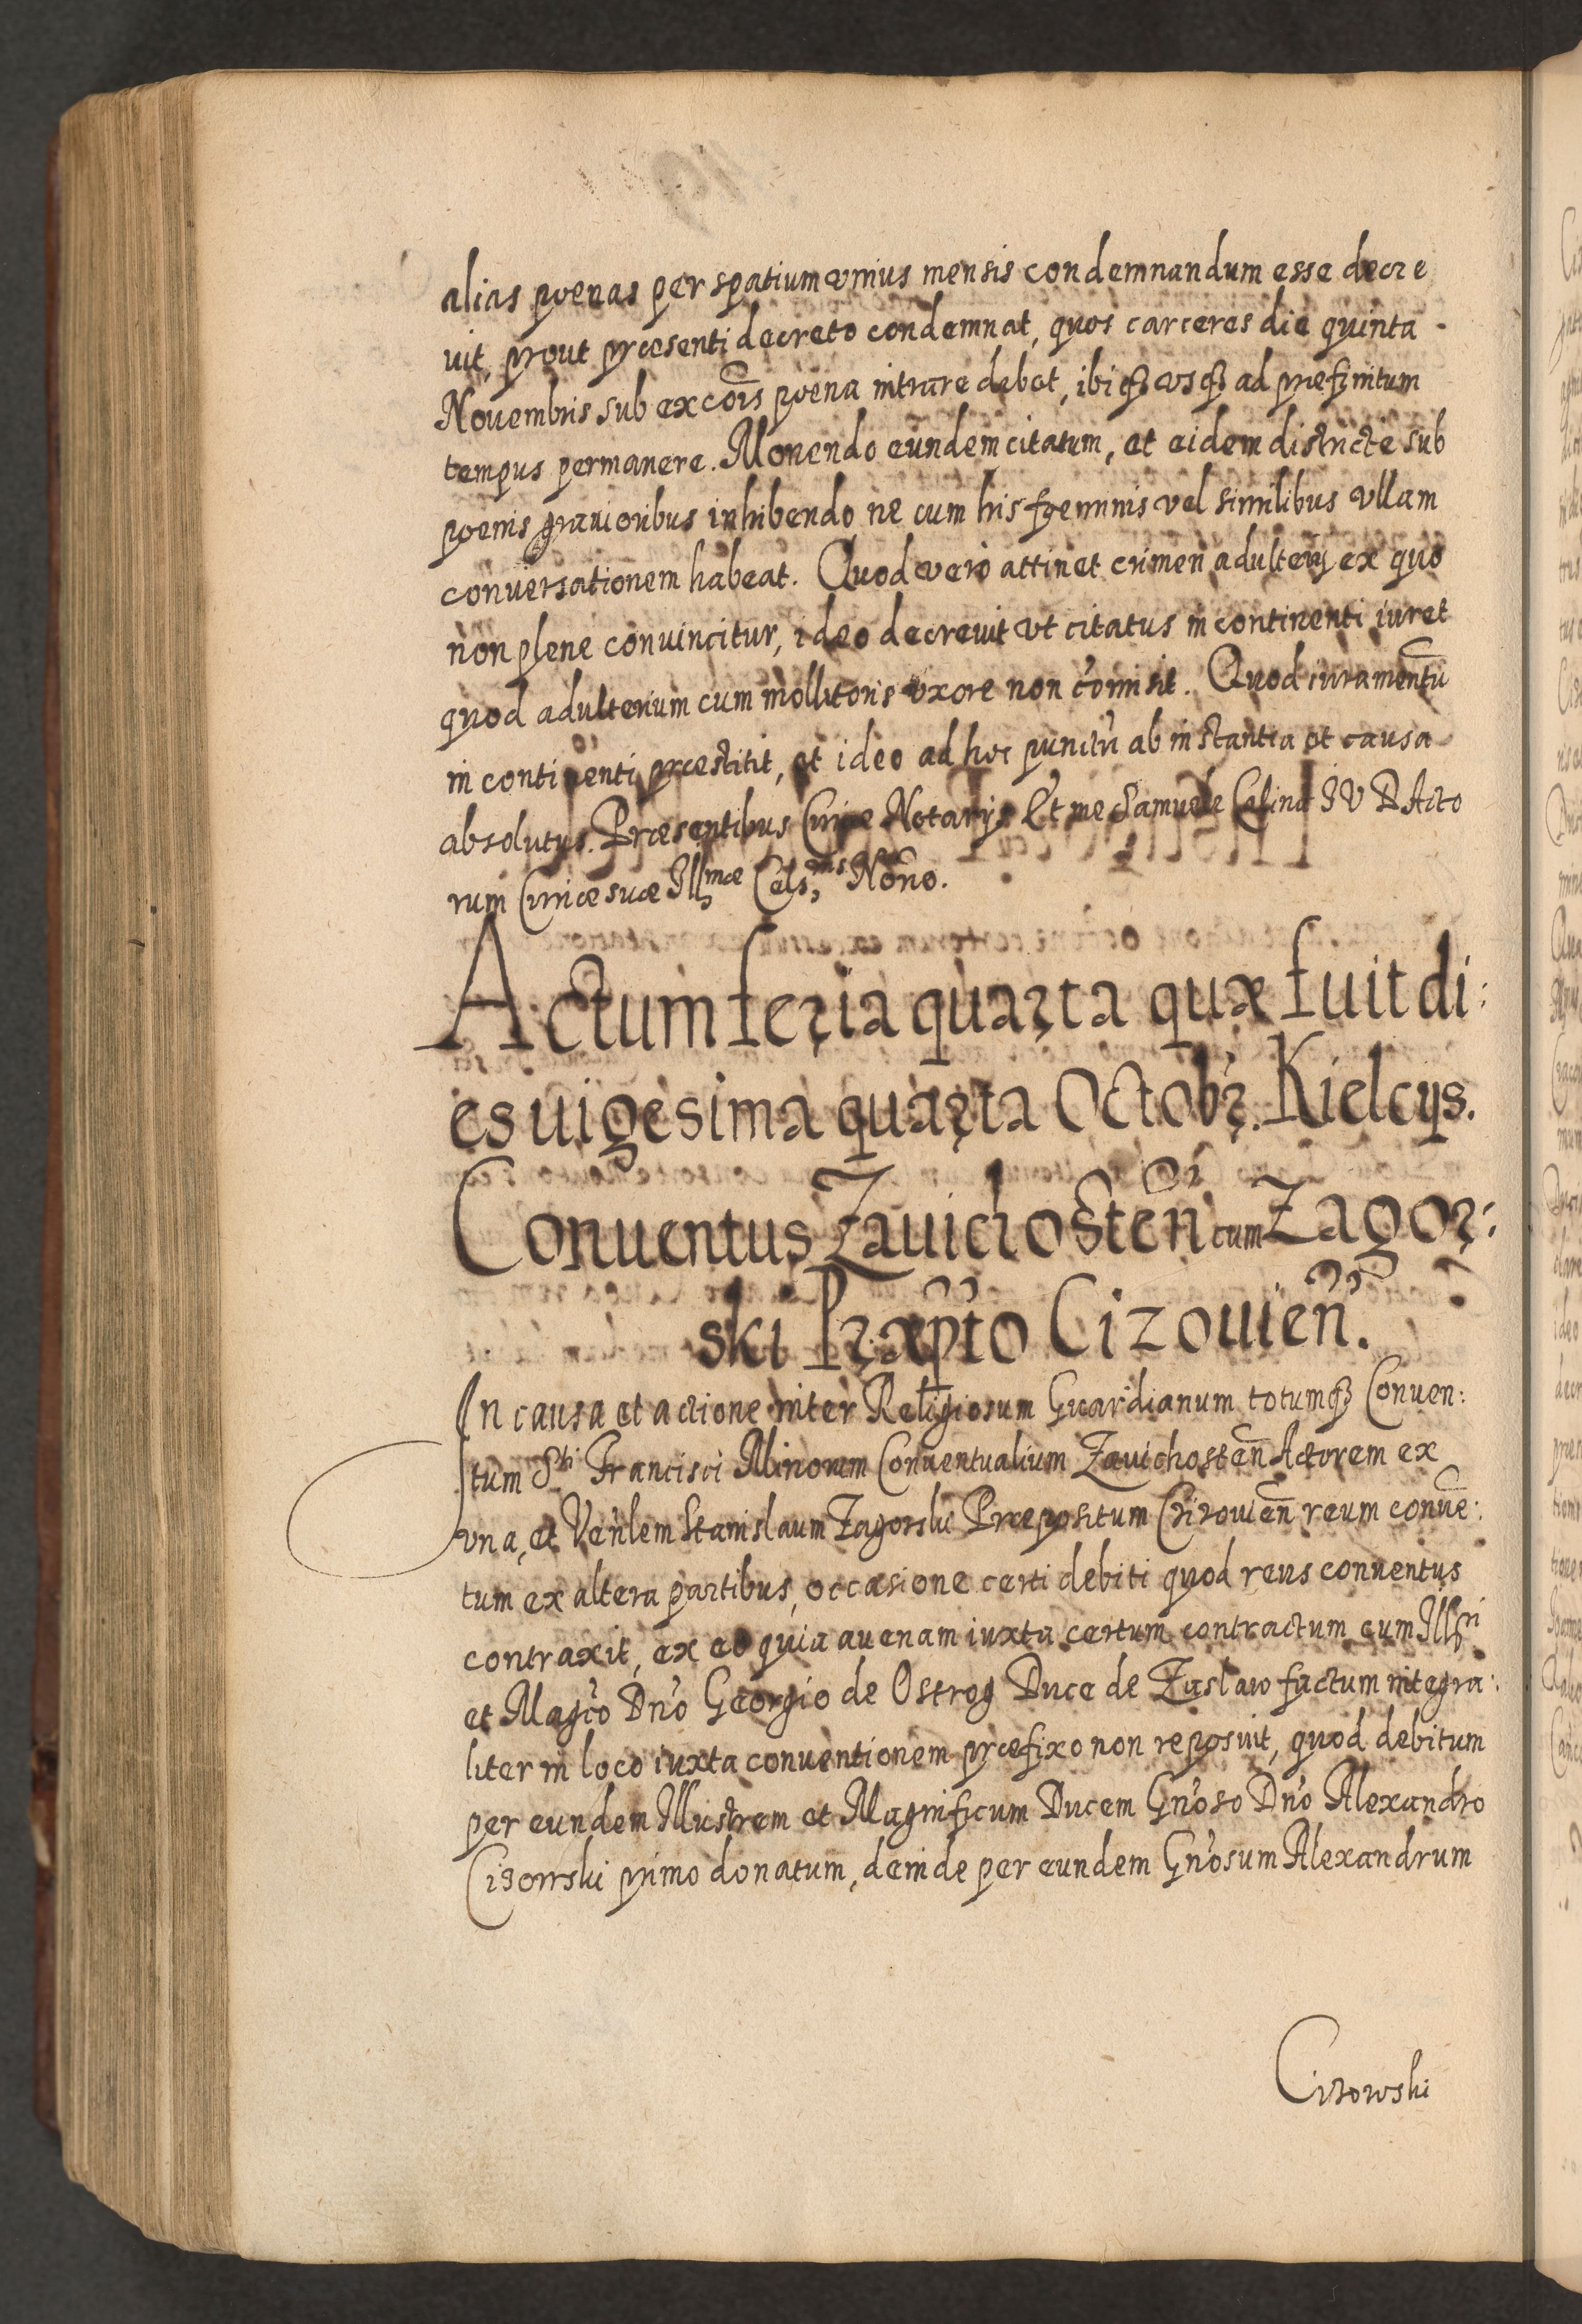 alias poenas per spatium vnius mensis condemnandum esse decre
uit, prout praesenti decreto condemnat, quos carceres die quinta
Nouembris sub excōis poena intrare debet, ibiqꝫ vsqꝫ ad praefinitum
tempus permanere. Monendo eundem citatum, et eidem districte sub
poenis grauioribus inhibendo ne cum his foeminis vel similibus vllam
conuersationem habeat. Quod vero attinet crimen adulterij ex quo
non plene conuincitur, ideo decreuit vt citatus in continenti iuret
quod adulterium cum mollitoris vxore non cōmisit. Quod iuramentū
in continenti praestitit, et ideo ad hoc punctū ab instantia et causa
absolutus. Praesentibus Curiae Notarijs Et me Samuele Celina I V D Acto
rum Curiae suae Illmae Cels.nis Nōrio.
Actum feria quarta quae fuit di:
es uigesima quarta Octobr. Kielcijs.
Conuentus Zauichosteñ cum Zagor:
ski Praepto Cizouieñ.
In causa et actione inter Religiosum Guardianum totumqꝫ Conuen:
tum Sti Francisci Minorum Conuentualium Zauichosteñ Actorem ex
vna, et Venlem Stanislaum Zagorski Praepositum Cizouień reum conue:
tum ex altera partibus, occasione certi debiti quod reus conuentus
contraxit, ex eo quia auenam iuxta certum contractum cum Illri
et Magco Dno Georgio de Ostrog Duce de Zaslaw factum integra:
liter in loco iuxta conuentionem praefixo non reposuit, quod debitum
per eundem Illustrem et Magnificum Ducem Gnoso Dno Alexandro
Cizowski primo donatum, deinde per eundem Gnosum Alexandrum
Cizowski